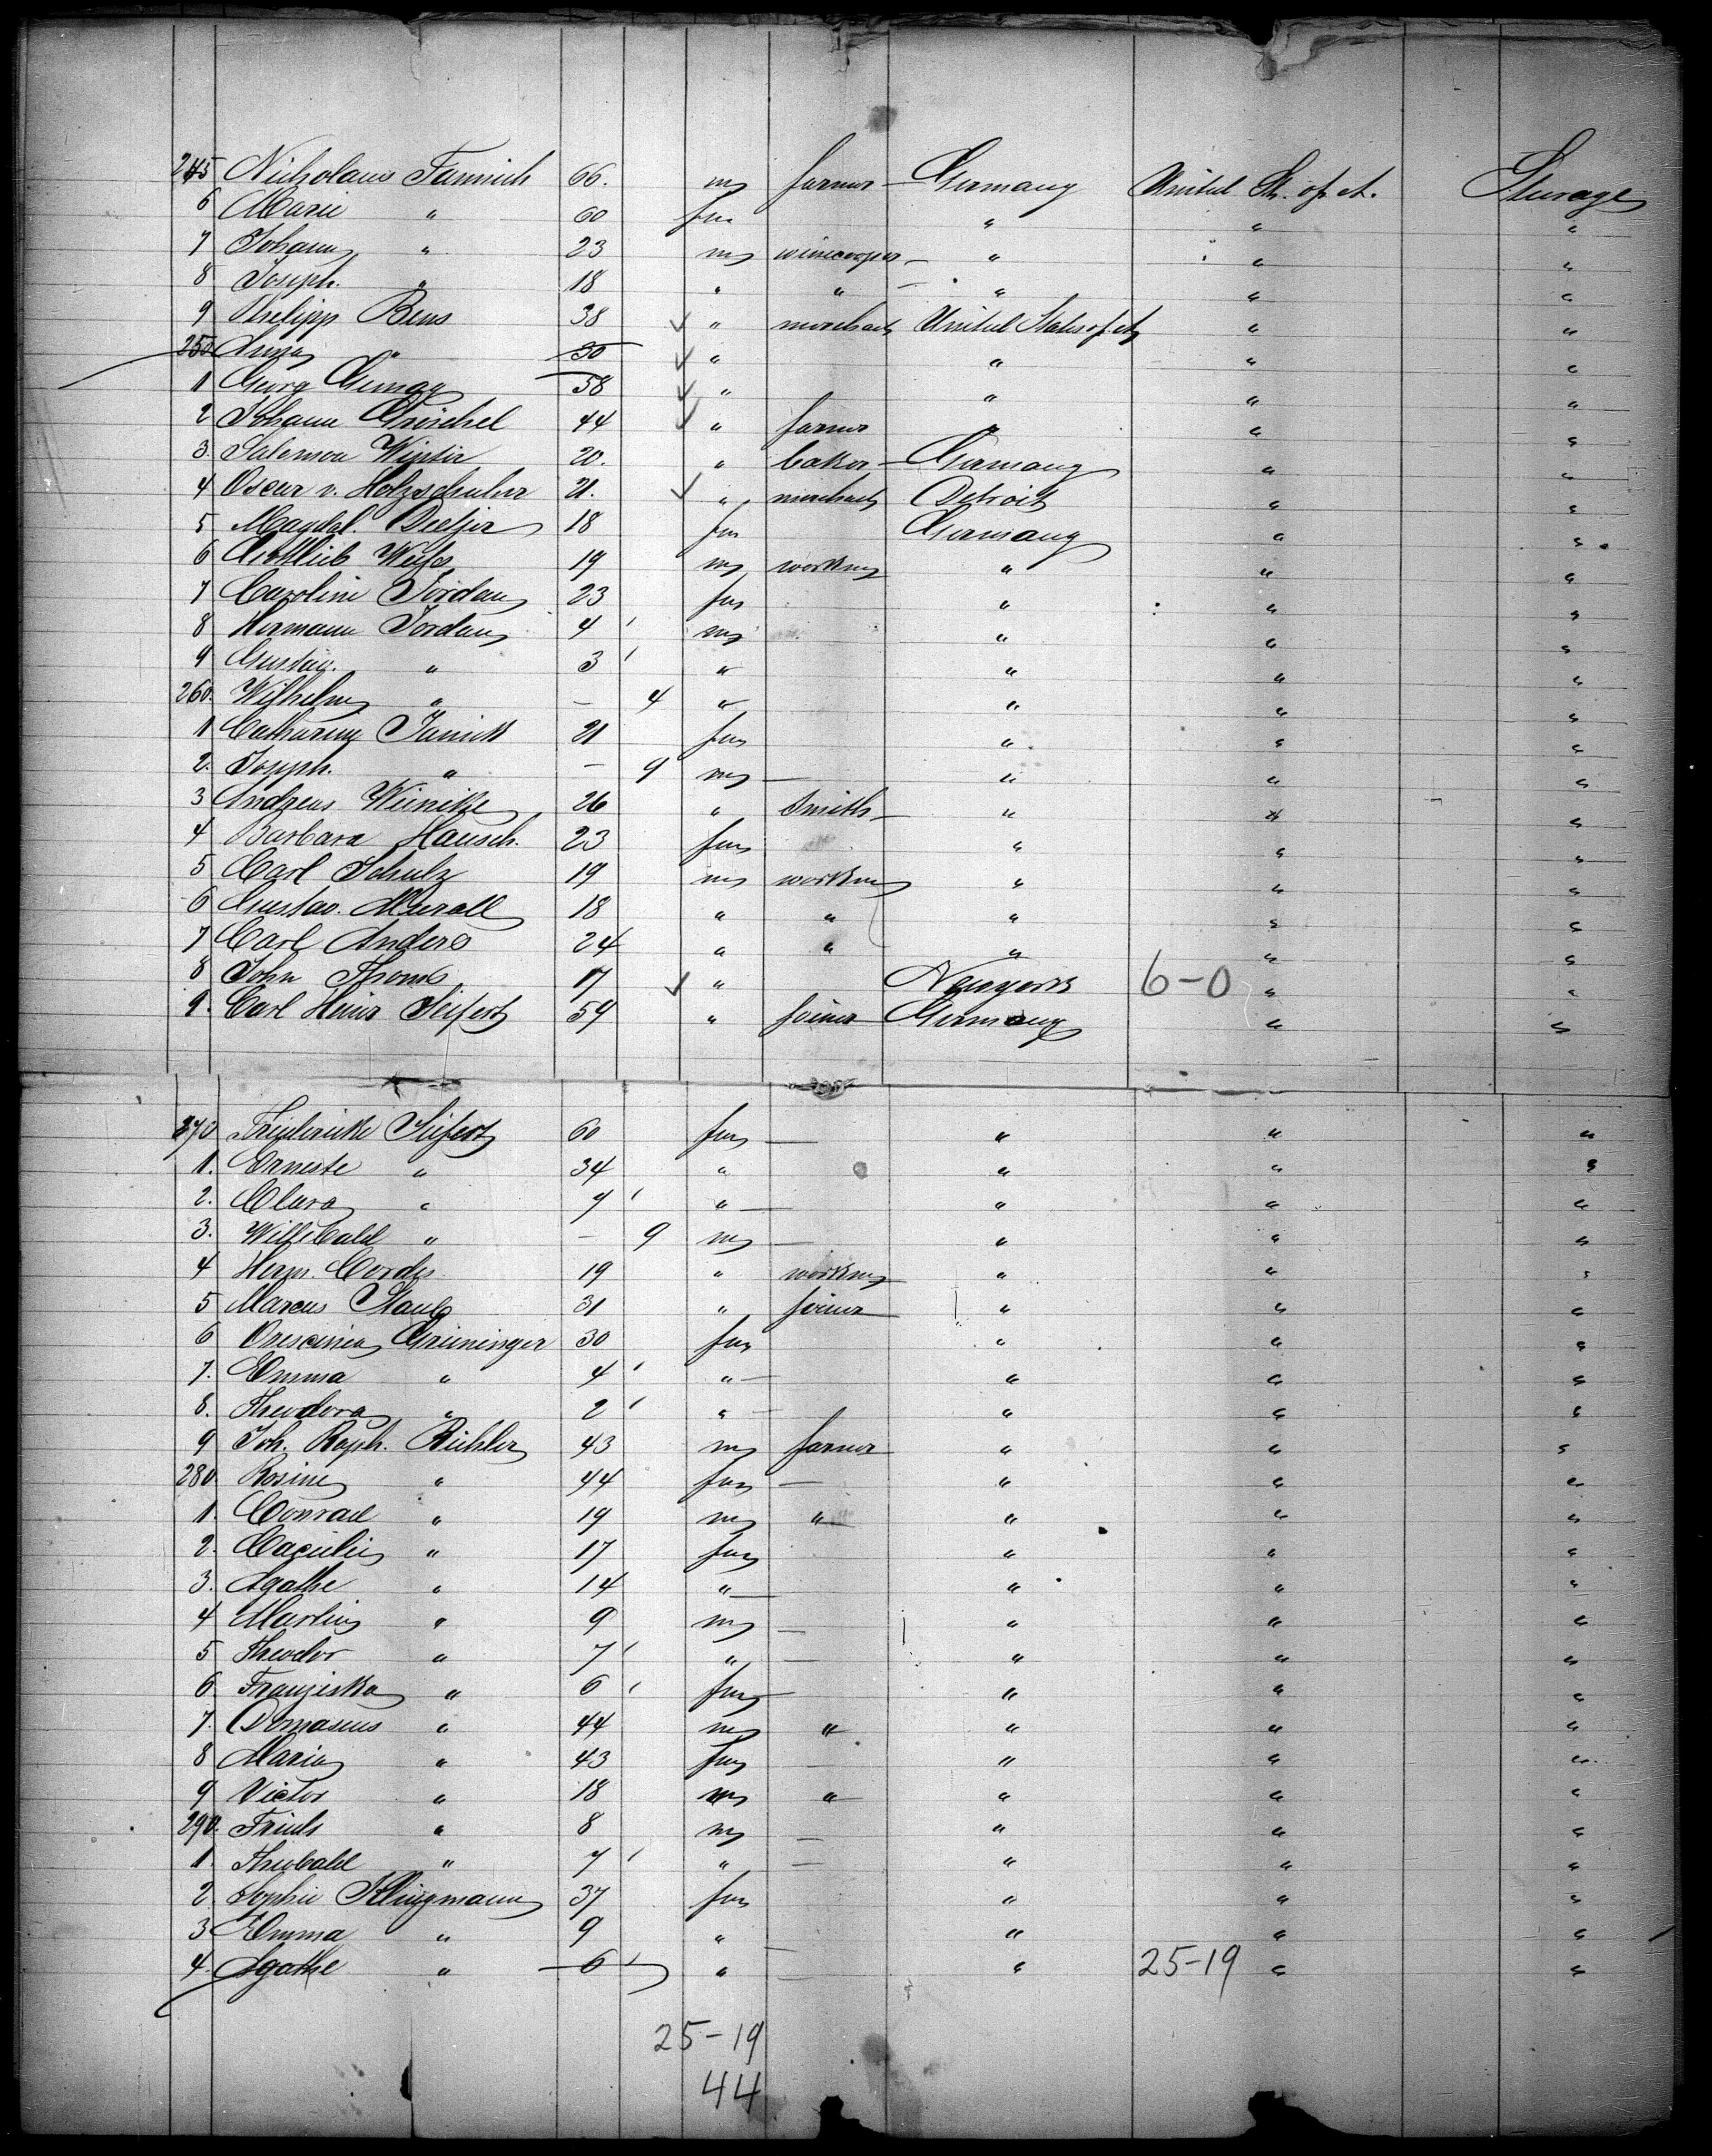 245 Nicholaus Jannich 66. m farmer Germany United St. of A. Steerage
6 Marie " 60 fm " " "
7 Johann " 23 m " " "
8 Joseph. " 18 " " " " "
9 Philipp Bens 38 " merchant United States of A " "
250 Anna " 30 " " " "
1 Georg 58 " " " "
2 Johann 44 " farmer " " "
3. Salomon Winter 20. " baker Germany " "
4 Oscar v. Holzschuher 21. " merchant Detroit " "
5 Magdal. 18 fm Germany " "
6 Gottlieb Weiss 19 m workm " " "
7 Caroline Jordan 23 fm " " "
8 Hermann Jordan 4 m " " "
9 Gustav. " 3 " " " "
260. Wilhelm " — 4 " " " "
1 Catharine Janick 21 fm " " "
2. Joseph. " — 9 m — " " "
3 Andreas Weinike 26 " Smith " " "
4 Barbara Hausch. 23 fm " " "
5 Carl Schulz 19 m workm " " "
6 Gustav. Murall 18 " " " " "
7 Carl Anders 24 " " " " "
8 John Thoms 17 " Newyork 6-0 " "
9. Carl Heinr Seifert 59 " joiner Germany " "
270 Friedericke Seifert 60 fm — " " "
1. Erneste " 34 " " " "
2. Clara " 7 " — " " "
3. Willibald " — 9 m — " " "
4 Herm. Cordes 19 " workm " " "
5 Marcus Staub 31 " joiner " " "
6 Crescencia Grieninger 30 fm " " "
7. Emma " 4 " — " " "
8. Theodora " 2 " — " " "
9 Joh. Raph. Bichler 43 m farmer " " "
280. Rosine " 44 fm — " " "
1. Conrad " 19 m " " " "
2. Cacielie " 17 fm " " "
3. Agathe " 14 " — " " "
4 Martin " 9 m — " " "
5 Theodor " 7 " — " " "
6. Franziska " 6 fm — " " "
7. Domasius " 44 m " " " "
8 Maria " 43 fm — " " "
9 Victor " 18 m " " " "
290. Frieds " 8 m — " " "
1. Theobald " 7 " — " " "
2. Sophie Klingmann 37 fm " " "
3 Emma " 9 " — " " "
4. Agathe " 6 " — " 25-19 " "
25-19
44